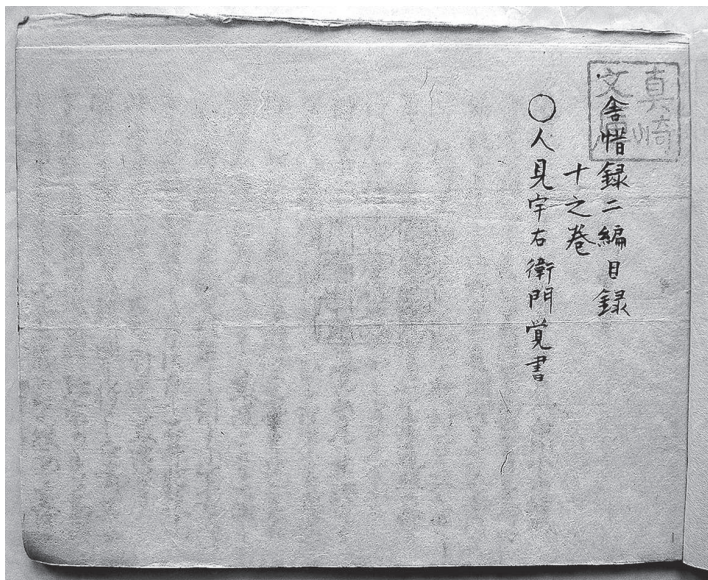 真崎
文庫
舎惜録二編目録
十之巻
〇人見宇右衛門覚書